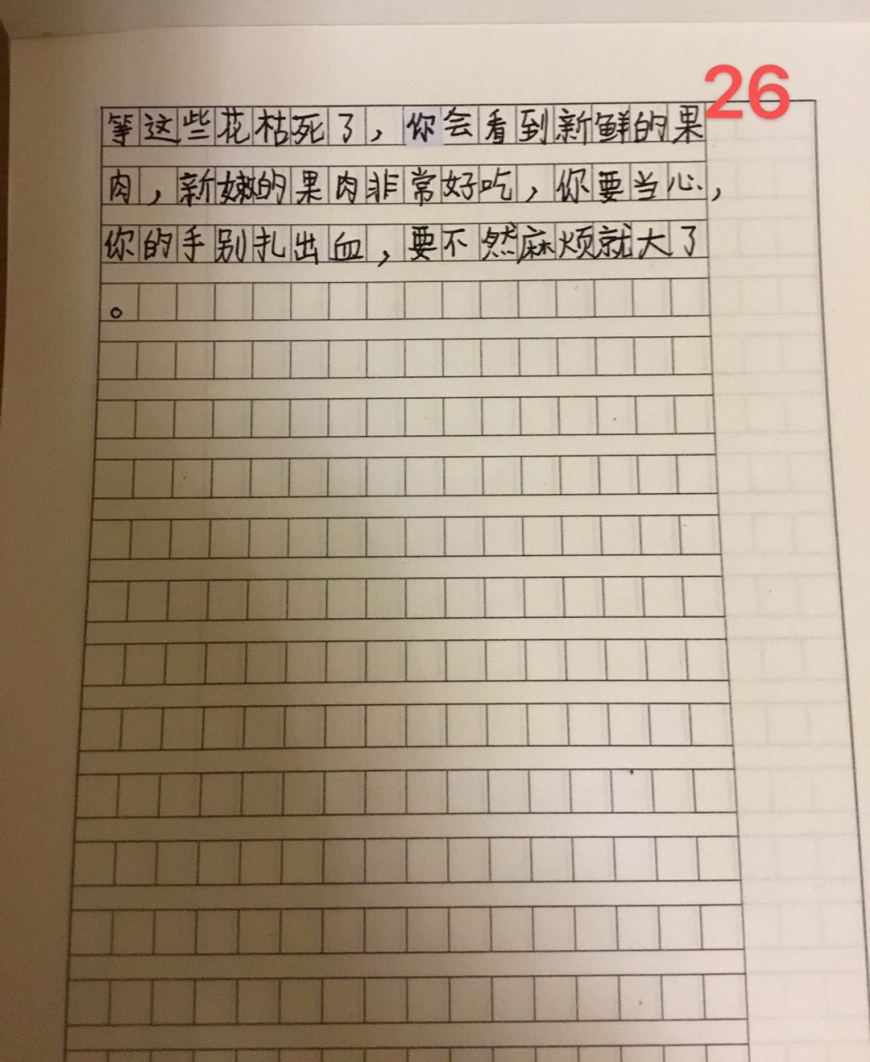 26
等这些花枯死了，你会看到新鲜的果
肉，新嫩的果肉非常好吃，你要当心，
你的手别扎出血，要不然麻烦就大了
。